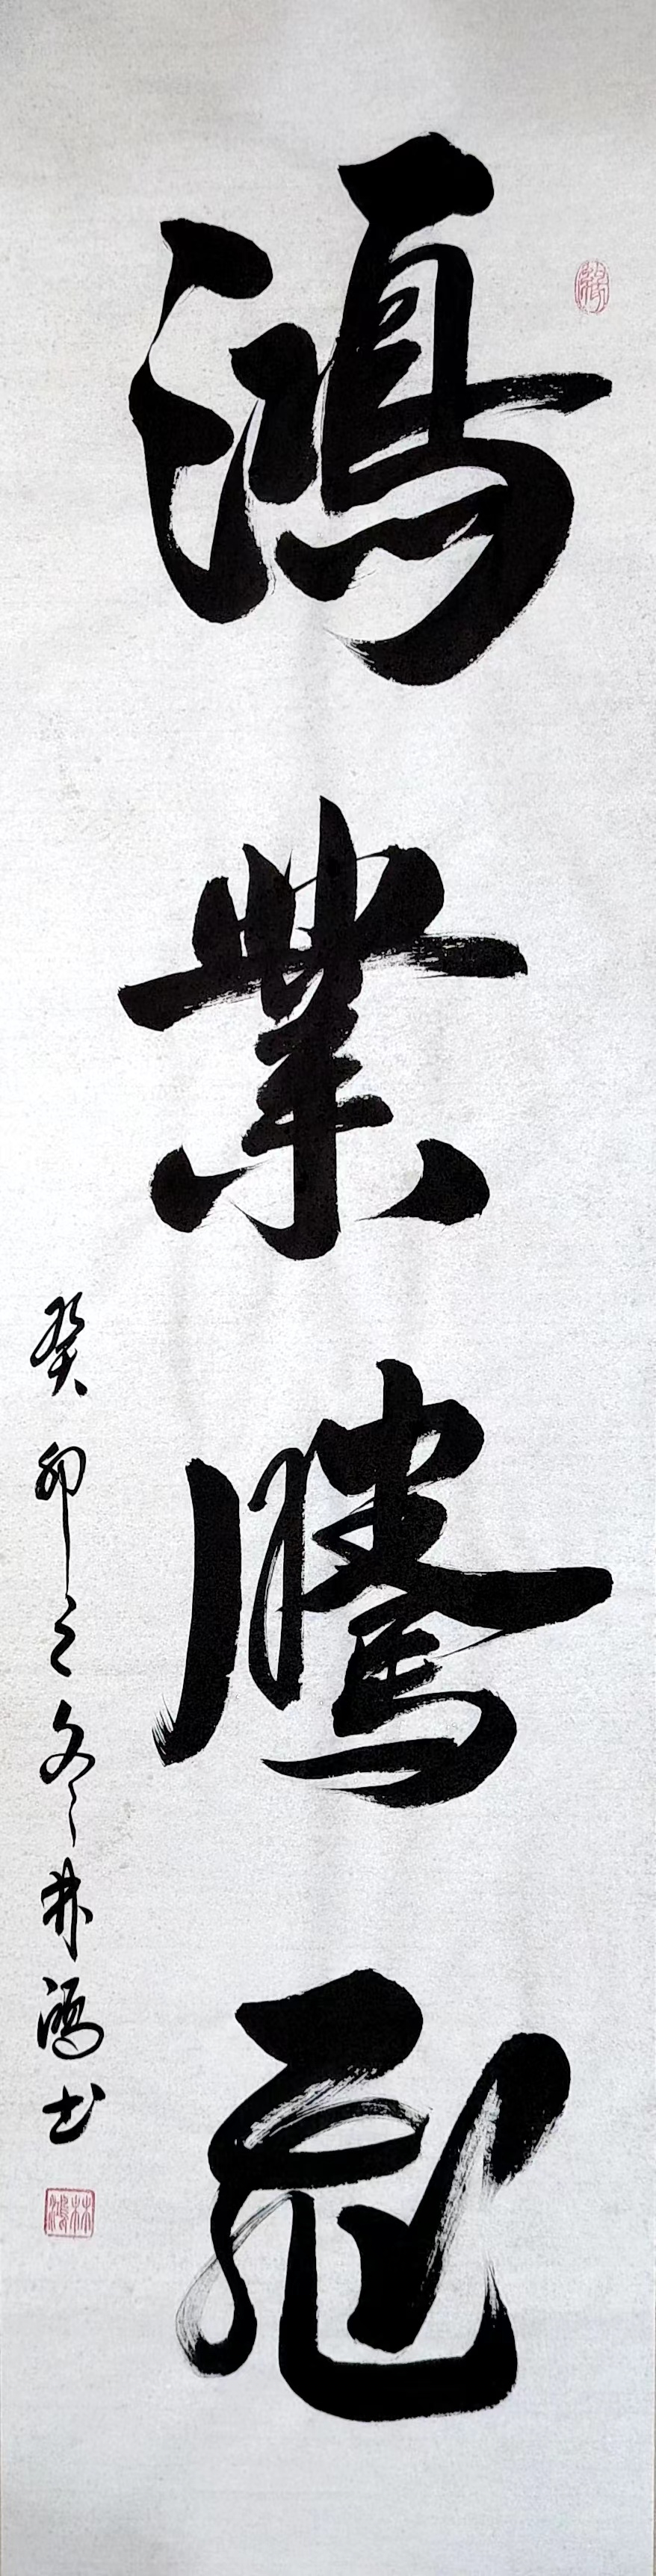 鴻業騰飛
癸卯之冬林鴻书
林鴻